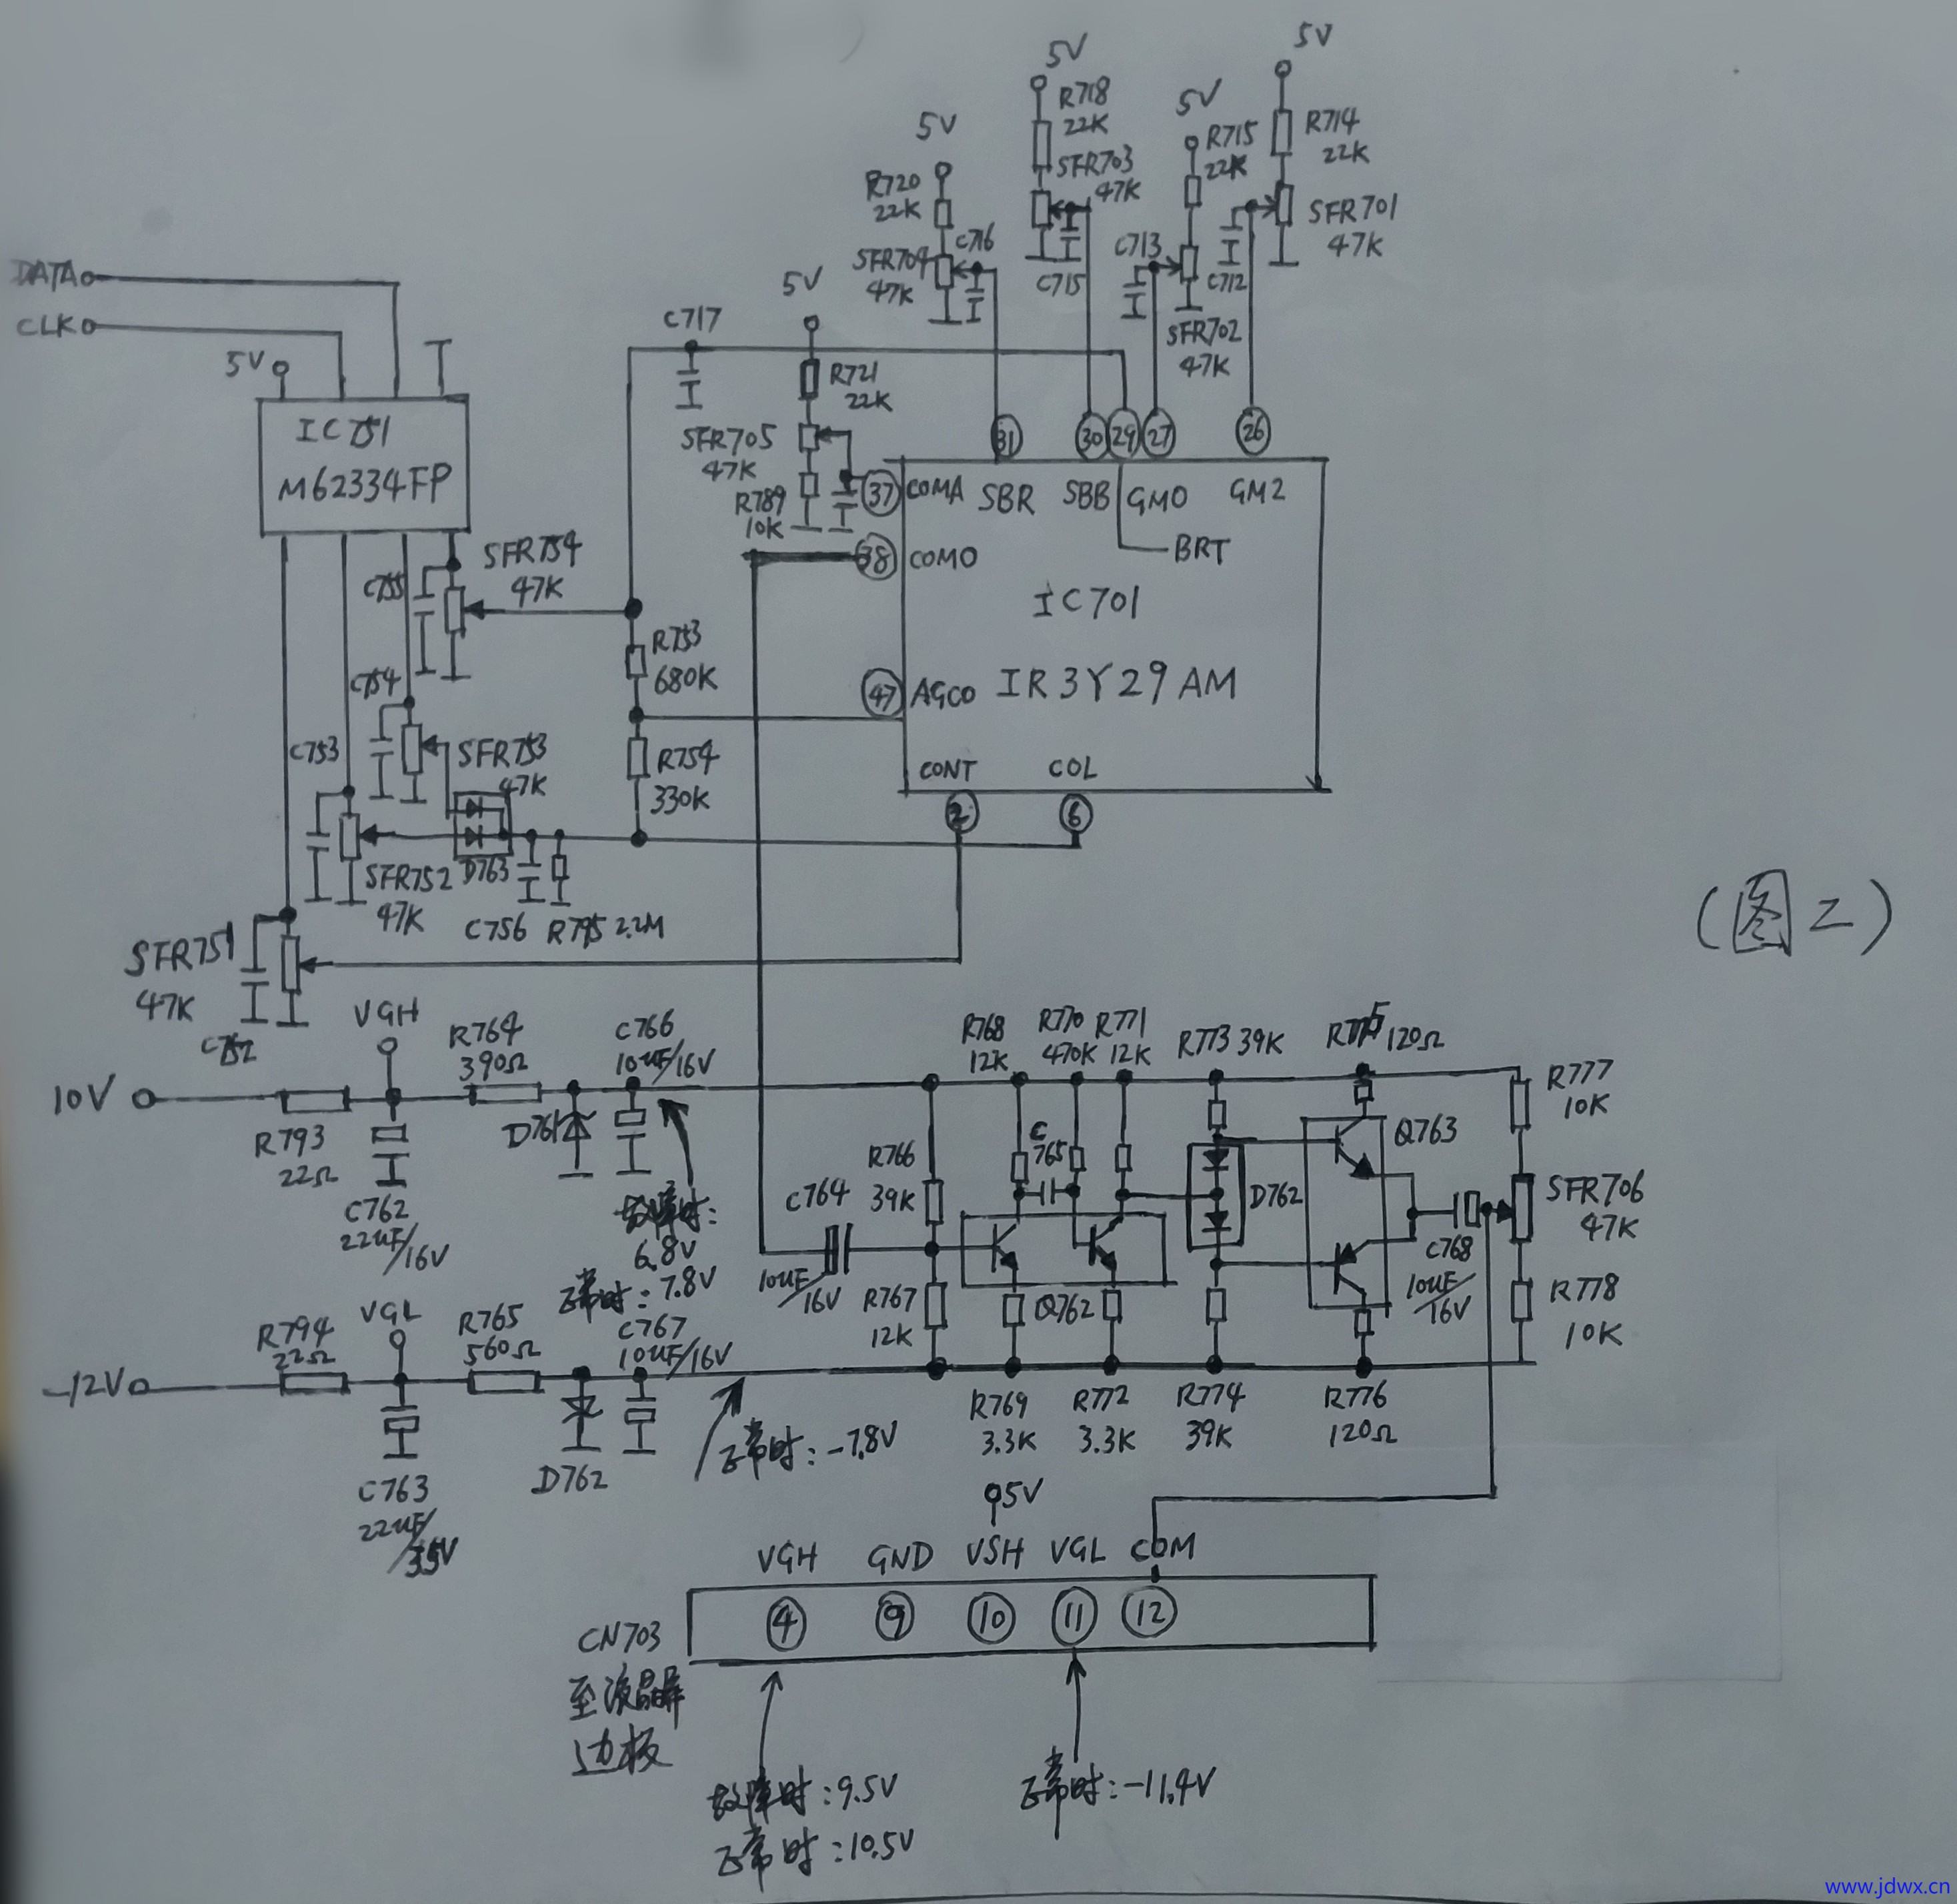 5V
5V
R718
22K
5V
R714
22K
5V
R715
22K
R720
22K
SFR703
47K
SFR701
47K
C716
SFR704
47K
C715
C713
C712
SFR702
47K
DATA
CLK
5V
C717
5V
R721
22K
IC751
M62334FP
SFR705
47K
R789
10K
31
30
29
27
26
37
COMA
SBR
SBB
GMO
GM2
38
COMO
BRT
SFR754
47K
C755
IC701
IR3Y29AM
R753
680K
47
AGCO
C754
C753
SFR753
47K
R754
330K
CONT
COL
2
6
SFR752
47K
D763
C756
R795 2.2M
(图二)
SFR751
47K
C752
VGH
R764
390Ω
C766
10uF/16V
R768
12K
R770
470K
R771
12K
R773 39K
R775 120Ω
10V
R793
22Ω
D761
R777
10K
C765
Q763
C762
22uF/16V
故障时:
6.8V
正常时:7.8V
C764
10uF/16V
R766
39K
D762
SFR706
47K
C768
10uF/16V
VGL
R794
22Ω
R765
560Ω
C767
10uF/16V
R767
12K
Q762
R778
10K
-12V
R769
3.3K
R772
3.3K
R774
39K
R776
120Ω
正常时:-7.8V
C763
22uF/35V
D762
5V
VGH
GND
VSH
VGL
COM
CN703
至液晶屏
边板
4
9
10
11
12
故障时:9.5V
正常时:10.5V
正常时:-11.4V
www.jdwx.cn